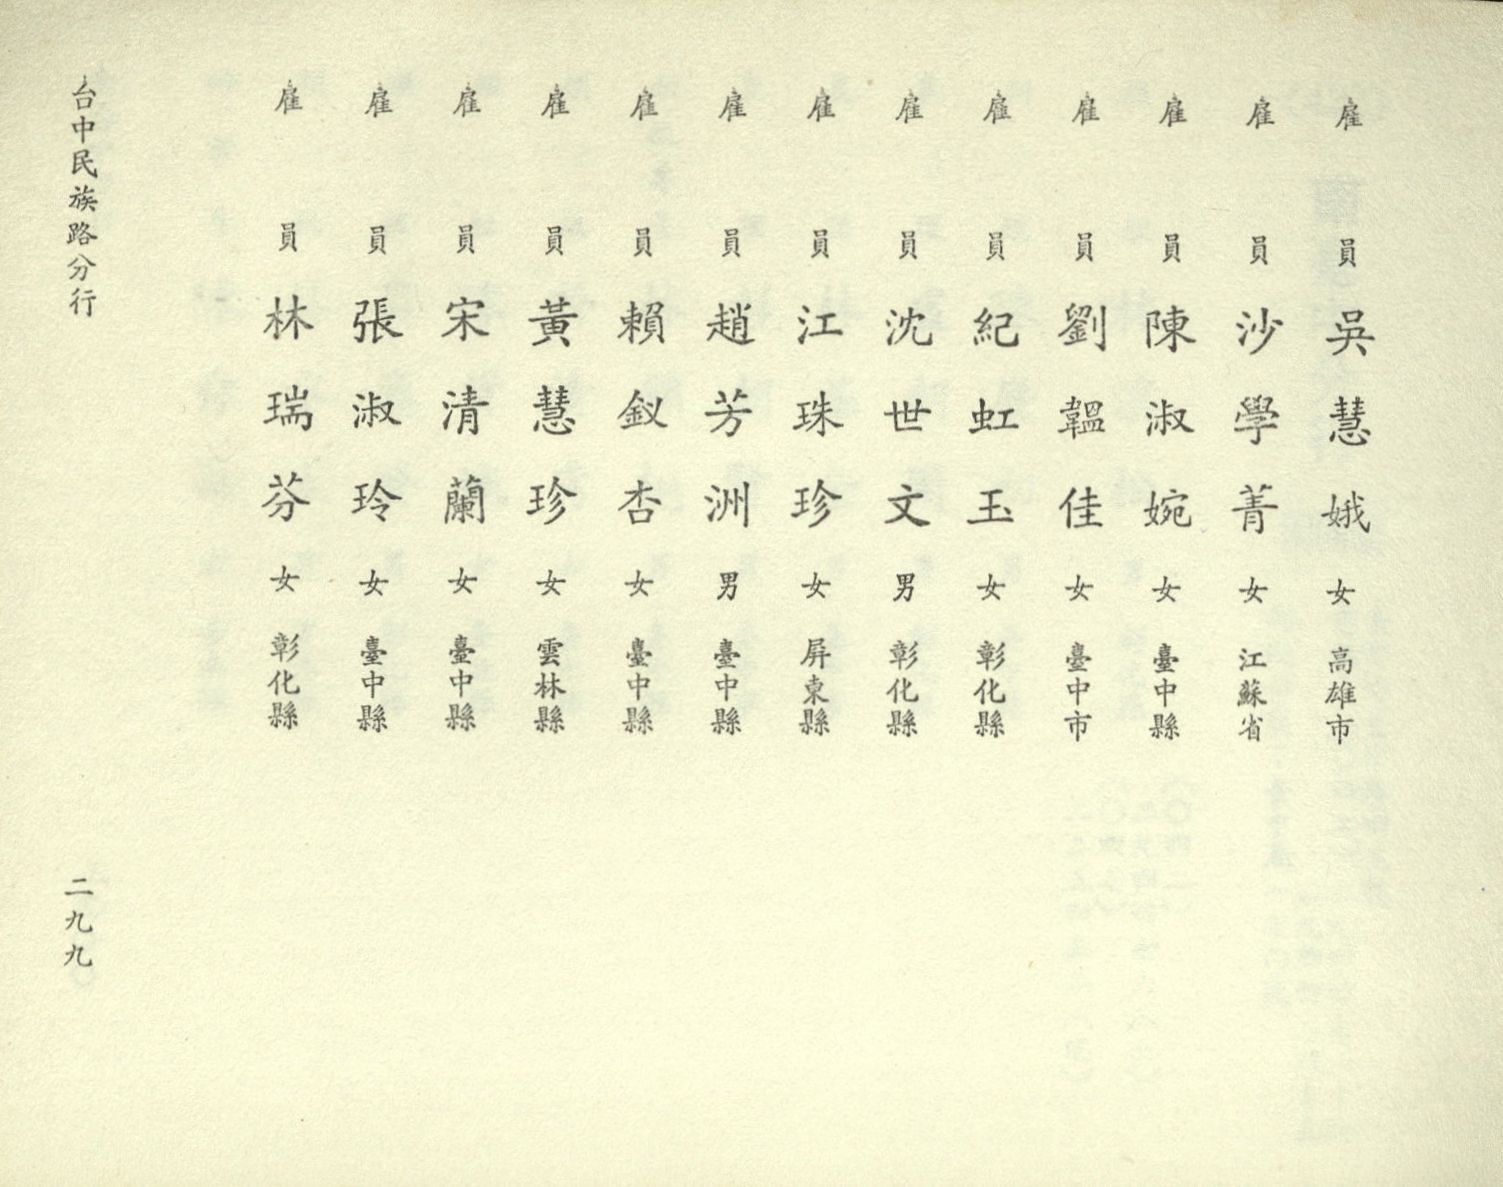 雇員 吳慧娥 女 高雄市
雇員 沙學菁 女 江蘇省
雇員 陳淑婉 女 臺中縣
雇員 劉韞佳 女 臺中市
雇員 紀虹玉 女 彰化縣
雇員 沈世文 男 彰化縣
雇員 江珠珍 女 屏東縣
雇員 趙芳洲 男 臺中縣
雇員 賴釵杏 女 臺中縣
雇員 黃慧珍 女 雲林縣
雇員 宋清蘭 女 臺中縣
雇員 張淑玲 女 臺中縣
雇員 林瑞芬 女 彰化縣
台中民族路分行 二九九